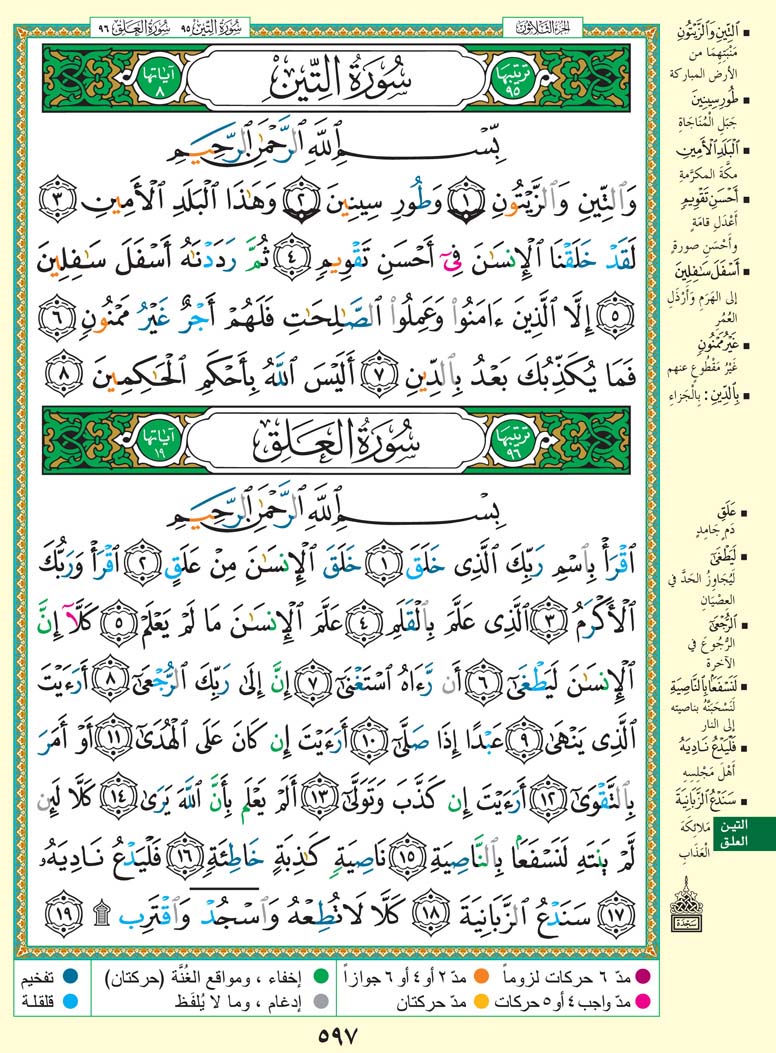 سُورَةُ التِّين ٩٥ سُورَةُ العَلَق ٩٦
الجزءُ الثّلاثون
ترتيبها ٩٥
سُورَةُ التِّينِ
آياتها ٨
بِّسْمِ ٱللَّهِ ٱلرَّحْمَٰنِ ٱلرَّحِيمِ
وَٱلتِّينِ وَٱلزَّيْتُونِ ١ وَطُورِ سِينِينَ ٢ وَهَٰذَا ٱلْبَلَدِ ٱلْأَمِينِ ٣
لَقَدْ خَلَقْنَا ٱلْإِنسَٰنَ فِىٓ أَحْسَنِ تَقْوِيمٍ ٤ ثُمَّ رَدَدْنَٰهُ أَسْفَلَ سَٰفِلِينَ
٥ إِلَّا ٱلَّذِينَ ءَامَنُوا۟ وَعَمِلُوا۟ ٱلصَّٰلِحَٰتِ فَلَهُمْ أَجْرٌ غَيْرُ مَمْنُونٍ ٦
فَمَا يُكَذِّبُكَ بَعْدُ بِٱلدِّينِ ٧ أَلَيْسَ ٱللَّهُ بِأَحْكَمِ ٱلْحَٰكِمِينَ ٨
ترتيبها ٩٦
سُورَةُ العَلَقِ
آياتها ١٩
بِسْمِ ٱللَّهِ ٱلرَّحْمَٰنِ ٱلرَّحِيمِ
ٱقْرَأْ بِٱسْمِ رَبِّكَ ٱلَّذِى خَلَقَ ١ خَلَقَ ٱلْإِنسَٰنَ مِنْ عَلَقٍ ٢ ٱقْرَأْ وَرَبُّكَ
ٱلْأَكْرَمُ ٣ ٱلَّذِى عَلَّمَ بِٱلْقَلَمِ ٤ عَلَّمَ ٱلْإِنسَٰنَ مَا لَمْ يَعْلَمْ ٥ كَلَّآ إِنَّ
ٱلْإِنسَٰنَ لَيَطْغَىٰٓ ٦ أَن رَّءَاهُ ٱسْتَغْنَىٰٓ ٧ إِنَّ إِلَىٰ رَبِّكَ ٱلرُّجْعَىٰٓ ٨ أَرَءَيْتَ
ٱلَّذِى يَنْهَىٰ ٩ عَبْدًا إِذَا صَلَّىٰٓ ١٠ أَرَءَيْتَ إِن كَانَ عَلَى ٱلْهُدَىٰٓ ١١ أَوْ أَمَرَ
بِٱلتَّقْوَىٰٓ ١٢ أَرَءَيْتَ إِن كَذَّبَ وَتَوَلَّىٰٓ ١٣ أَلَمْ يَعْلَم بِأَنَّ ٱللَّهَ يَرَىٰ ١٤ كَلَّا لَئِن
لَّمْ يَنتَهِ لَنَسْفَعًۢا بِٱلنَّاصِيَةِ ١٥ نَاصِيَةٍ كَٰذِبَةٍ خَاطِئَةٍ ١٦ فَلْيَدْعُ نَادِيَهُۥ
١٧ سَنَدْعُ ٱلزَّبَانِيَةَ ١٨ كَلَّا لَا تُطِعْهُ وَٱسْجُدْ وَٱقْتَرِب ۩ ١٩
▪ ٱلتِّينِ وَٱلزَّيْتُونِ
مَنْبَتِهِمَا من
الأرض المباركة
▪ طُورِ سِينِينَ
جَبَلِ الْمُنَاجَاةِ
▪ ٱلْبَلَدِ ٱلْأَمِينِ
مكَّة المكرَّمةِ
▪ أَحْسَنِ تَقْوِيمٍ
أَعْدَلِ قامَةٍ
وأحْسَنِ صورةٍ
▪ أَسْفَلَ سَٰفِلِينَ
إلى الهَرَمِ وَأَرْذَلِ
العُمُر
▪ غَيْرُ مَمْنُونٍ
غَيْرُ مَقْطُوعٍ عنهم
▪ بِٱلدِّينِ : بِالْجَزاءِ
▪ عَلَقٍ
دَمٍ جَامِدٍ
▪ لَيَطْغَىٰٓ
لَيُجَاوِزُ الحَدَّ في
العصْيَانِ
▪ ٱلرُّجْعَىٰٓ
الرُّجُوعَ في
الآخرة
▪ لَنَسْفَعًۢا بِٱلنَّاصِيَةِ
لَنَسْحَبَنَّهُ بناصيته
إلى النار
▪ فَلْيَدْعُ نَادِيَهُۥ
أهْلَ مَجْلِسِهِ
▪ سَنَدْعُ ٱلزَّبَانِيَةَ
مَلائِكَةَ
الْعَذَابِ
التين
العلق
سَجْدَة
مدّ ٦ حركات لزوماً
مدّ ٢ أو ٤ أو ٦ جوازاً
إخفاء ، ومواقع الغُنَّة (حركتان)
تفخيم
مدّ واجب ٤ أو ٥ حركات
مدّ حركتان
إدغام ، وما لا يُلفَظ
قلقلة
٥٩٧